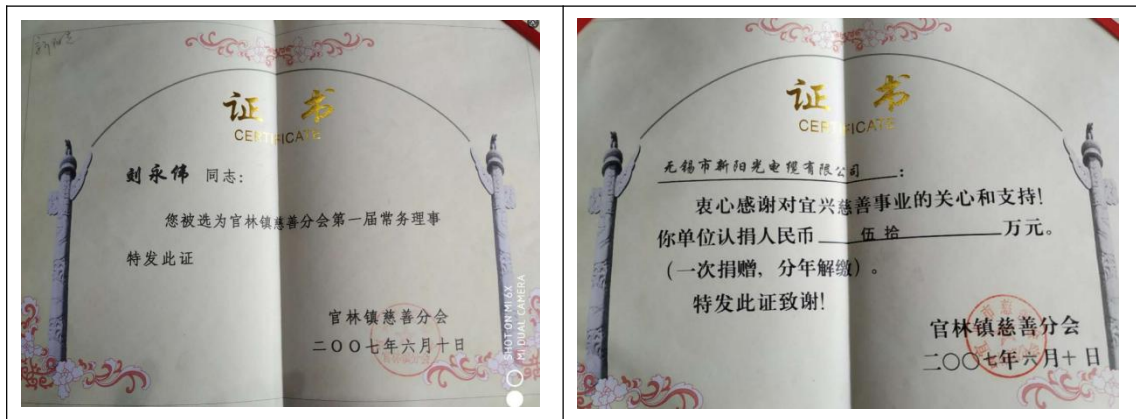 证书
CERTIFICATE
刘永伟 同志：
您被选为官林镇慈善分会第一届常务理事
特发此证
官林镇慈善分会
二〇〇七年六月十日
SHOT ON MI 6X
MI DUAL CAMERA
证书
CERTIFICATE
无锡市新阳光电缆有限公司：
衷心感谢对宜兴慈善事业的关心和支持！
你单位认捐人民币 伍拾 万元。
（一次捐赠，分年解缴）。
特发此证致谢！
官林镇慈善分会
二〇〇七年六月十日